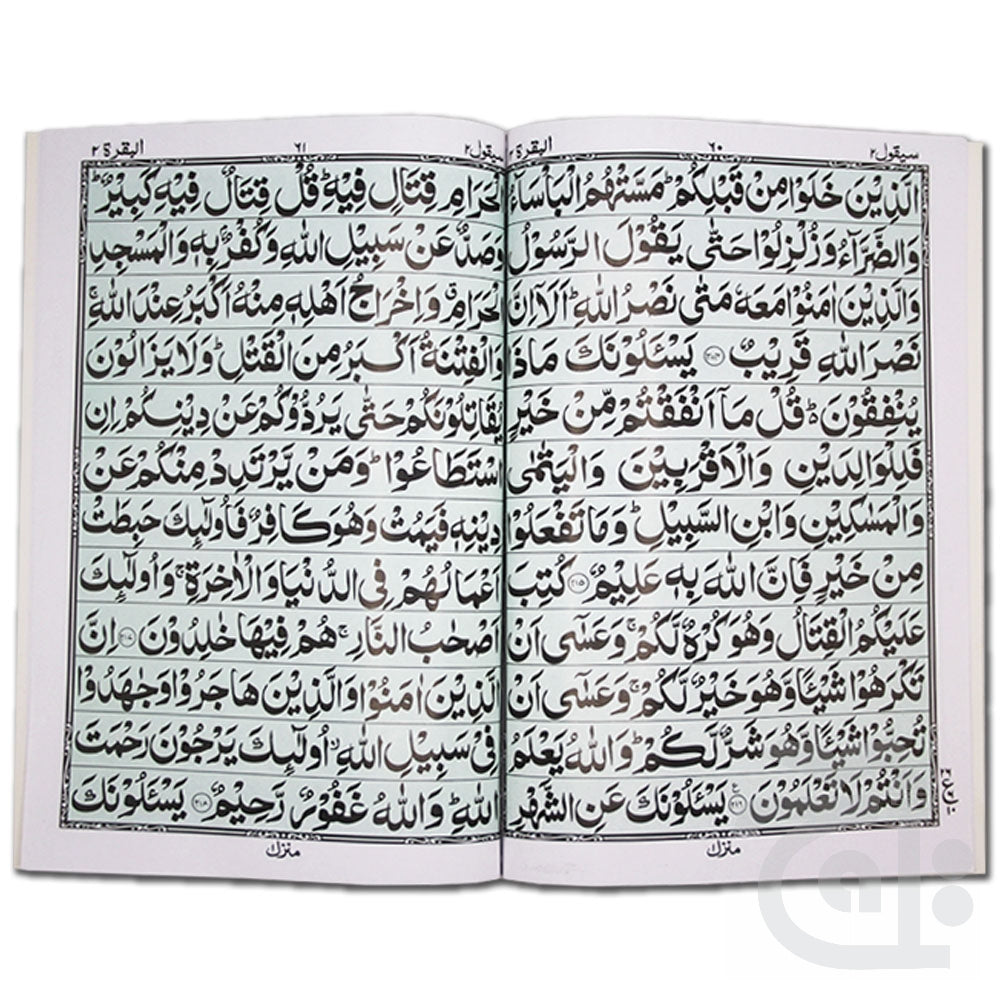 سيقول ٢ ٦٠ البقرة ٢
الَّذِيْنَ خَلَوْا مِنْ قَبْلِكُمْ ؕ مَسَّتْهُمُ الْبَاْسَآءُ
وَالضَّرَّآءُ وَزُلْزِلُوْا حَتّٰى يَقُوْلَ الرَّسُوْلُ
وَالَّذِيْنَ اٰمَنُوْا مَعَهٗ مَتٰى نَصْرُ اللّٰهِ ؕ اَلَاۤ اِنَّ
نَصْرَ اللّٰهِ قَرِيْبٌ ﴿٢١٤﴾ يَسْـَٔلُوْنَكَ مَاذَا
يُنْفِقُوْنَ ؕ قُلْ مَاۤ اَنْفَقْتُمْ مِّنْ خَيْرٍ
فَلِلْوَالِدَيْنِ وَالْاَقْرَبِيْنَ وَالْيَتٰمٰى
وَالْمَسٰكِيْنِ وَابْنِ السَّبِيْلِ ؕ وَمَا تَفْعَلُوْا
مِنْ خَيْرٍ فَاِنَّ اللّٰهَ بِهٖ عَلِيْمٌ ﴿٢١٥﴾ كُتِبَ
عَلَيْكُمُ الْقِتَالُ وَهُوَ كُرْهٌ لَّكُمْ ۚ وَعَسٰۤى اَنْ
تَكْرَهُوْا شَيْـًٔا وَّهُوَ خَيْرٌ لَّكُمْ ۚ وَعَسٰۤى اَنْ
تُحِبُّوْا شَيْـًٔا وَّهُوَ شَرٌّ لَّكُمْ ؕ وَاللّٰهُ يَعْلَمُ
وَاَنْتُمْ لَا تَعْلَمُوْنَ ﴿٢١٦﴾ يَسْـَٔلُوْنَكَ عَنِ الشَّهْرِ
منزل
سيقول ٢ ٦١ البقرة ٢
الْحَرَامِ قِتَالٍ فِيْهِ ؕ قُلْ قِتَالٌ فِيْهِ كَبِيْرٌ ؕ
وَصَدٌّ عَنْ سَبِيْلِ اللّٰهِ وَكُفْرٌۢ بِهٖ وَالْمَسْجِدِ
الْحَرَامِ ۗ وَاِخْرَاجُ اَهْلِهٖ مِنْهُ اَكْبَرُ عِنْدَ اللّٰهِ ۚ
وَالْفِتْنَةُ اَكْبَرُ مِنَ الْقَتْلِ ؕ وَلَا يَزَالُوْنَ
يُقَاتِلُوْنَكُمْ حَتّٰى يَرُدُّوْكُمْ عَنْ دِيْنِكُمْ اِنِ
اسْتَطَاعُوْا ؕ وَمَنْ يَّرْتَدِدْ مِنْكُمْ عَنْ
دِيْنِهٖ فَيَمُتْ وَهُوَ كَافِرٌ فَاُولٰٓئِكَ حَبِطَتْ
اَعْمَالُهُمْ فِى الدُّنْيَا وَالْاٰخِرَةِ ۚ وَاُولٰٓئِكَ
اَصْحٰبُ النَّارِ ۚ هُمْ فِيْهَا خٰلِدُوْنَ ﴿٢١٧﴾ اِنَّ
الَّذِيْنَ اٰمَنُوْا وَالَّذِيْنَ هَاجَرُوْا وَجٰهَدُوْا
فِىْ سَبِيْلِ اللّٰهِ ۙ اُولٰٓئِكَ يَرْجُوْنَ رَحْمَتَ
اللّٰهِ ؕ وَاللّٰهُ غَفُوْرٌ رَّحِيْمٌ ﴿٢١٨﴾ يَسْـَٔلُوْنَكَ
منزل